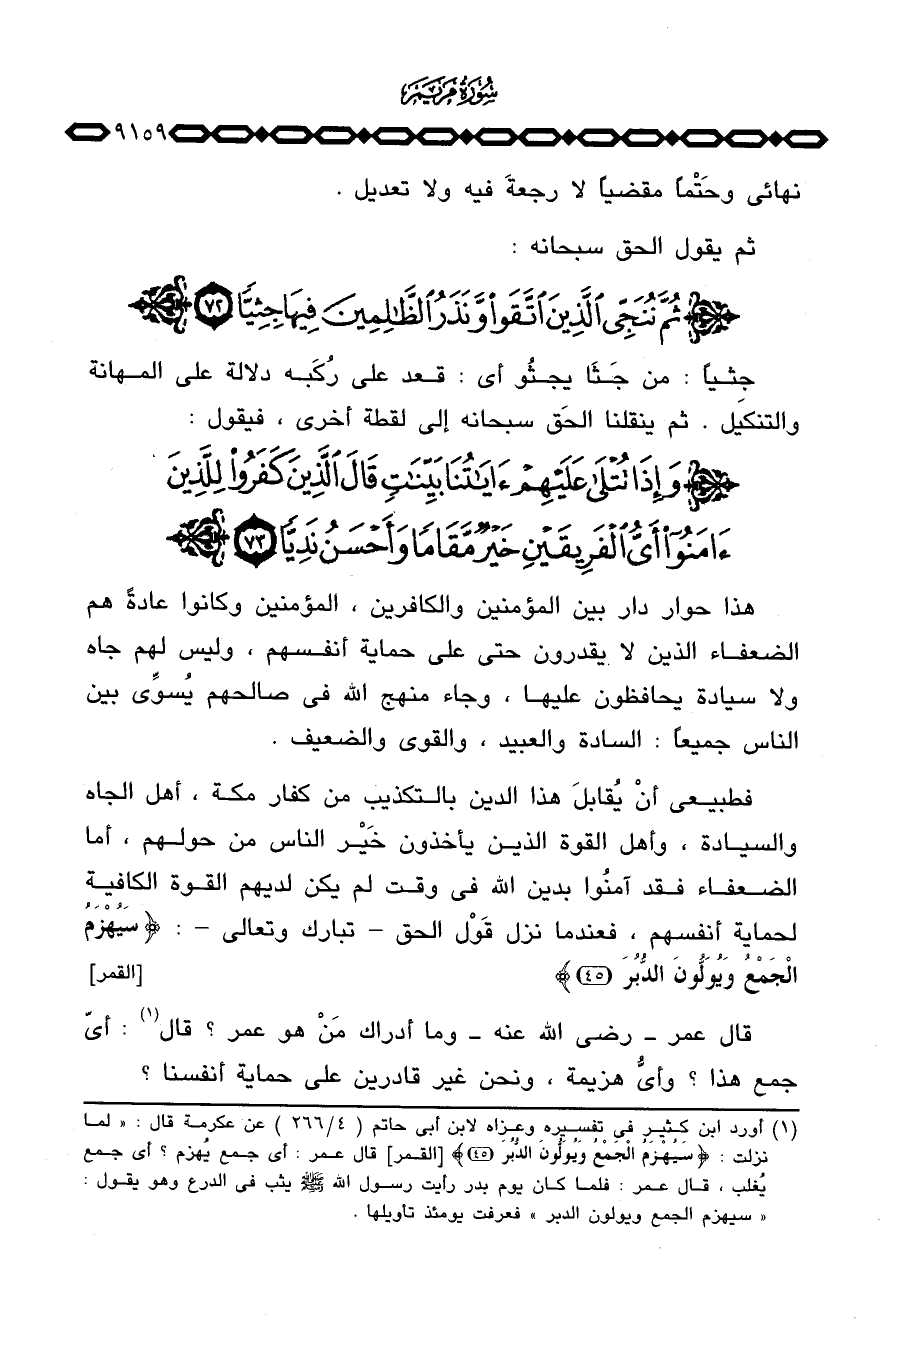 سُورَةُ مَرْيَمَ
٩١٥٩
نهائى وحَتْماً مقضياً لا رجعةَ فيه ولا تعديل .
ثم يقول الحق سبحانه :
ثُمَّ نُنَجِّى ٱلَّذِينَ ٱتَّقَواْ وَّنَذَرُ ٱلظَّٰلِمِينَ فِيهَا جِثِيًّا ٧٢
جثياً : من جَثَا يجثُو أى : قعد على رُكَبه دلالة على المهانة
والتنكيل . ثم ينقلنا الحَق سبحانه إلى لقطة أخرى ، فيقول :
وَإِذَا تُتْلَىٰ عَلَيْهِمْ ءَايَٰتُنَا بَيِّنَٰتٍ قَالَ ٱلَّذِينَ كَفَرُواْ لِلَّذِينَ
ءَامَنُوٓاْ أَىُّ ٱلْفَرِيقَيْنِ خَيْرٌ مَّقَامًا وَأَحْسَنُ نَدِيًّا ٧٣
هذا حوار دار بين المؤمنين والكافرين ، المؤمنين وكانوا عادةً هم
الضعفاء الذين لا يقدرون حتى على حماية أنفسهم ، وليس لهم جاه
ولا سيادة يحافظون عليها ، وجاء منهج الله فى صالحهم يُسوِّى بين
الناس جميعاً : السادة والعبيد ، والقوى والضعيف .
فطبيعى أنْ يُقابلَ هذا الدين بالتكذيب من كفار مكة ، أهل الجاه
والسيادة ، وأهل القوة الذين يأخذون خَيْر الناس من حولهم ، أما
الضعفاء فقد آمنُوا بدين الله فى وقت لم يكن لديهم القوة الكافية
لحماية أنفسهم ، فعندما نزل قَوْل الحق – تبارك وتعالى – : ﴿ سَيُهْزَمُ
الْجَمْعُ وَيُوَلُّونَ الدُّبُرَ (٤٥) ﴾ [القمر]
قال عمر ـ رضى الله عنه ـ وما أدراك مَنْ هو عمر ؟ قال(١) : أىّ
جمع هذا ؟ وأىُّ هزيمة ، ونحن غير قادرين على حماية أنفسنا ؟
(١) أورد ابن كثير فى تفسيره وعزاه لابن أبى حاتم ( ٢٦٦/٤ ) عن عكرمة قال : « لما
نزلت : ﴿ سَيُهْزَمُ الْجَمْعُ وَيُوَلُّونَ الدُّبُرَ (٤٥) ﴾ [القمر] قال عمر : أى جمع يُهزم ؟ أى جمع
يُغلب ، قال عمر : فلما كان يوم بدر رأيت رسول الله ﷺ يثب فى الدرع وهو يقول :
« سيهزم الجمع ويولون الدبر » فعرفت يومئذ تأويلها .